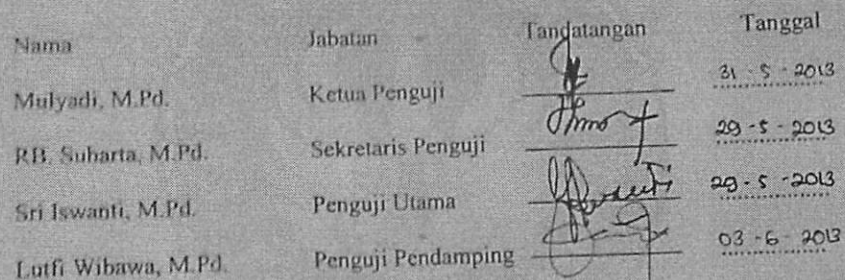 Nama Jabatan Tandatangan Tanggal
Mulyadi, M.Pd. Ketua Penguji 31 - 5 - 2013
RB. Suharta, M.Pd. Sekretaris Penguji 29 - 5 - 2013
Sri Iswanti, M.Pd. Penguji Utama 29 - 5 - 2013
Lutfi Wibawa, M.Pd. Penguji Pendamping 03 - 6 - 2013